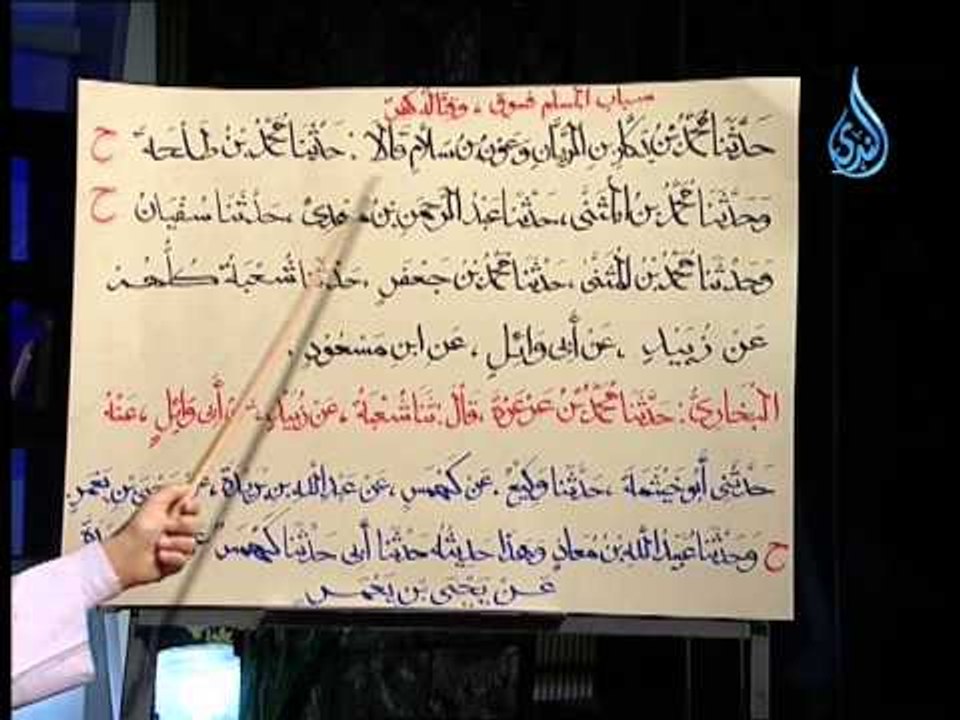 سباب المسلم فسوق ، وقتاله كفر
حَدَّثَنَا مُحَمَّدُ بْنُ بَكَّارِ بْنِ الرَّيَّانِ وَعَوْنُ بْنُ سَلَّامٍ قَالَا : حَدَّثَنَا مُحَمَّدُ بْنُ طَلْحَةَ ح
وَحَدَّثَنَا مُحَمَّدُ بْنُ الْمُثَنَّى ، حَدَّثَنَا عَبْدُ الرَّحْمَنِ بْنُ مَهْدِيٍّ ، حَدَّثَنَا سُفْيَانُ ح
وَحَدَّثَنَا مُحَمَّدُ بْنُ الْمُثَنَّى ، حَدَّثَنَا مُحَمَّدُ بْنُ جَعْفَرٍ ، حَدَّثَنَا شُعْبَةُ كُلُّهُمْ
عَنْ زُبَيْدٍ ، عَنْ أَبِي وَائِلٍ ، عَنِ ابْنِ مَسْعُودٍ .
الْبُخَارِيُّ : حَدَّثَنَا مُحَمَّدُ بْنُ عَرْعَرَةَ ، قَالَ : ثَنَا شُعْبَةُ ، عَنْ زُبَيْدٍ ، أَبِي وَائِلٍ ، عَنْهُ
حَدَّثَنِي أَبُو خَيْثَمَةَ ، حَدَّثَنَا وَكِيعٌ ، عَنْ كَهْمَسٍ ، عَنْ عَبْدِ اللهِ بْنِ بُرَيْدَةَ ، بْنِ يَعْمَرَ
ح وَحَدَّثَنَا عُبَيْدُ اللهِ بْنُ مُعَاذٍ وَهَذَا حَدِيثُهُ حَدَّثَنَا أَبِي حَدَّثَنَا كَهْمَسٌ
عَنْ يَحْيَى بْنِ يَعْمَرَ
الندى